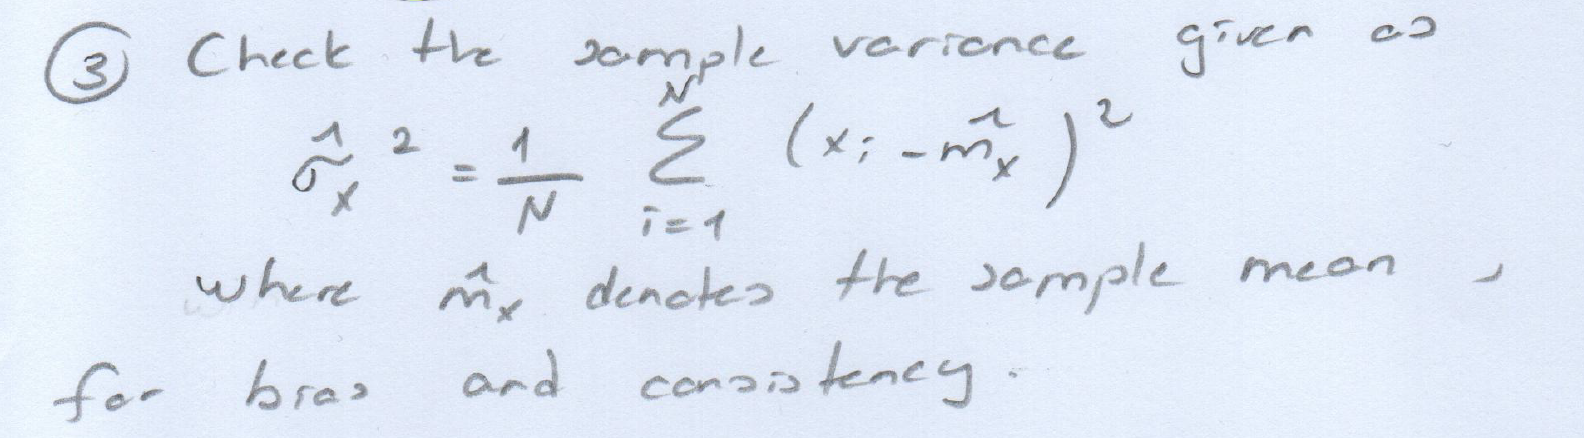 ③ Check the sample variance given as
σ̂ₓ² = 1/N Σ_{i=1}^{N} (xᵢ - m̂ₓ)²
where m̂ₓ denotes the sample mean,
for bias and consistency.